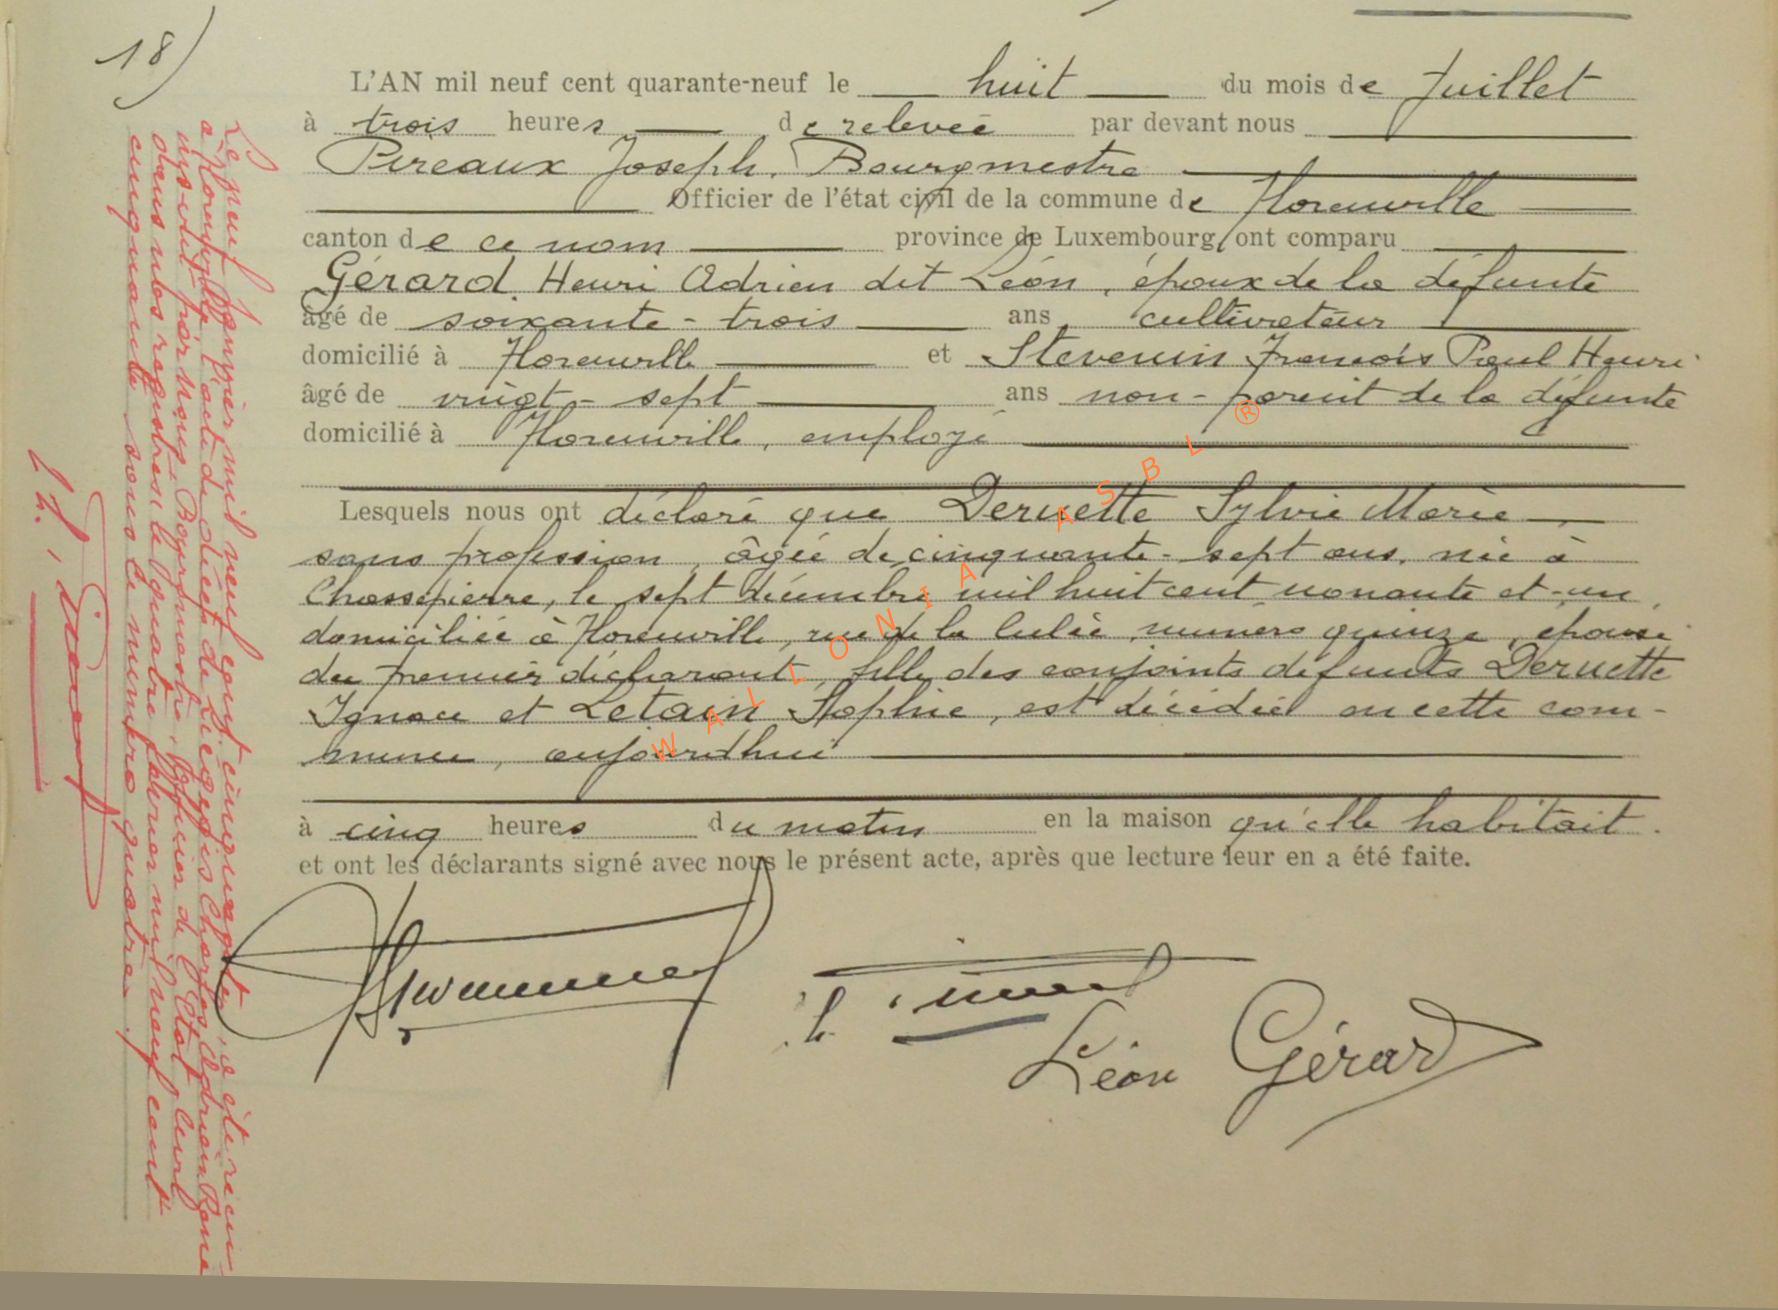 18)
L'AN mil neuf cent quarante-neuf le huit du mois de Juillet
à trois heures de relevée par devant nous
Pireaux Joseph, Bourgmestre
Officier de l'état civil de la commune de Florenville
canton de ce nom province de Luxembourg, ont comparu
Gérard, Henri Adrien dit Léon, époux de la défunte
âgé de soixante-trois ans cultivateur
domicilié à Florenville et Stevenin François Paul Henri
âgé de vingt-sept ans non-parent de la défunte
domicilié à Florenville, employé
Lesquels nous ont déclaré que Deruette Sylvie Marie
sans profession, âgée de cinquante-sept ans, née à
Chassepierre, le sept décembre mil huit cent nonante et-un,
domiciliée à Florenville, rue de la numéro quinze, épouse
du premier déclarant, fille des conjoints défunts Deruette
Ignace et Letain Sophie, est décédée en cette com-
mune, aujourdhui
à cinq heures du matin en la maison qu'elle habitait.
et ont les déclarants signé avec nous le présent acte, après que lecture leur en a été faite.
Léon Gérard
Le neuf janvier mil neuf cent cinquante, a été
à Florenville, l'acte de décès de Charles, Adrien René
par nous, Bourgmestre, Officier de l'Etat Civil
dans nos registres le quatre janvier mil neuf cent
cinquante sous le numéro quatre.
WALLONIA ASBL ®